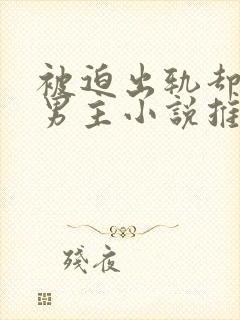 被迫出轨却
男主小説推
殘夜